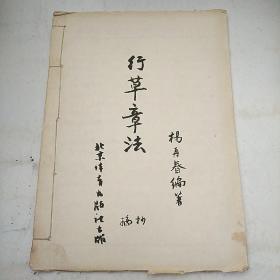 杨再春编著
行草章法
抄
稿
北京体育出版社出版